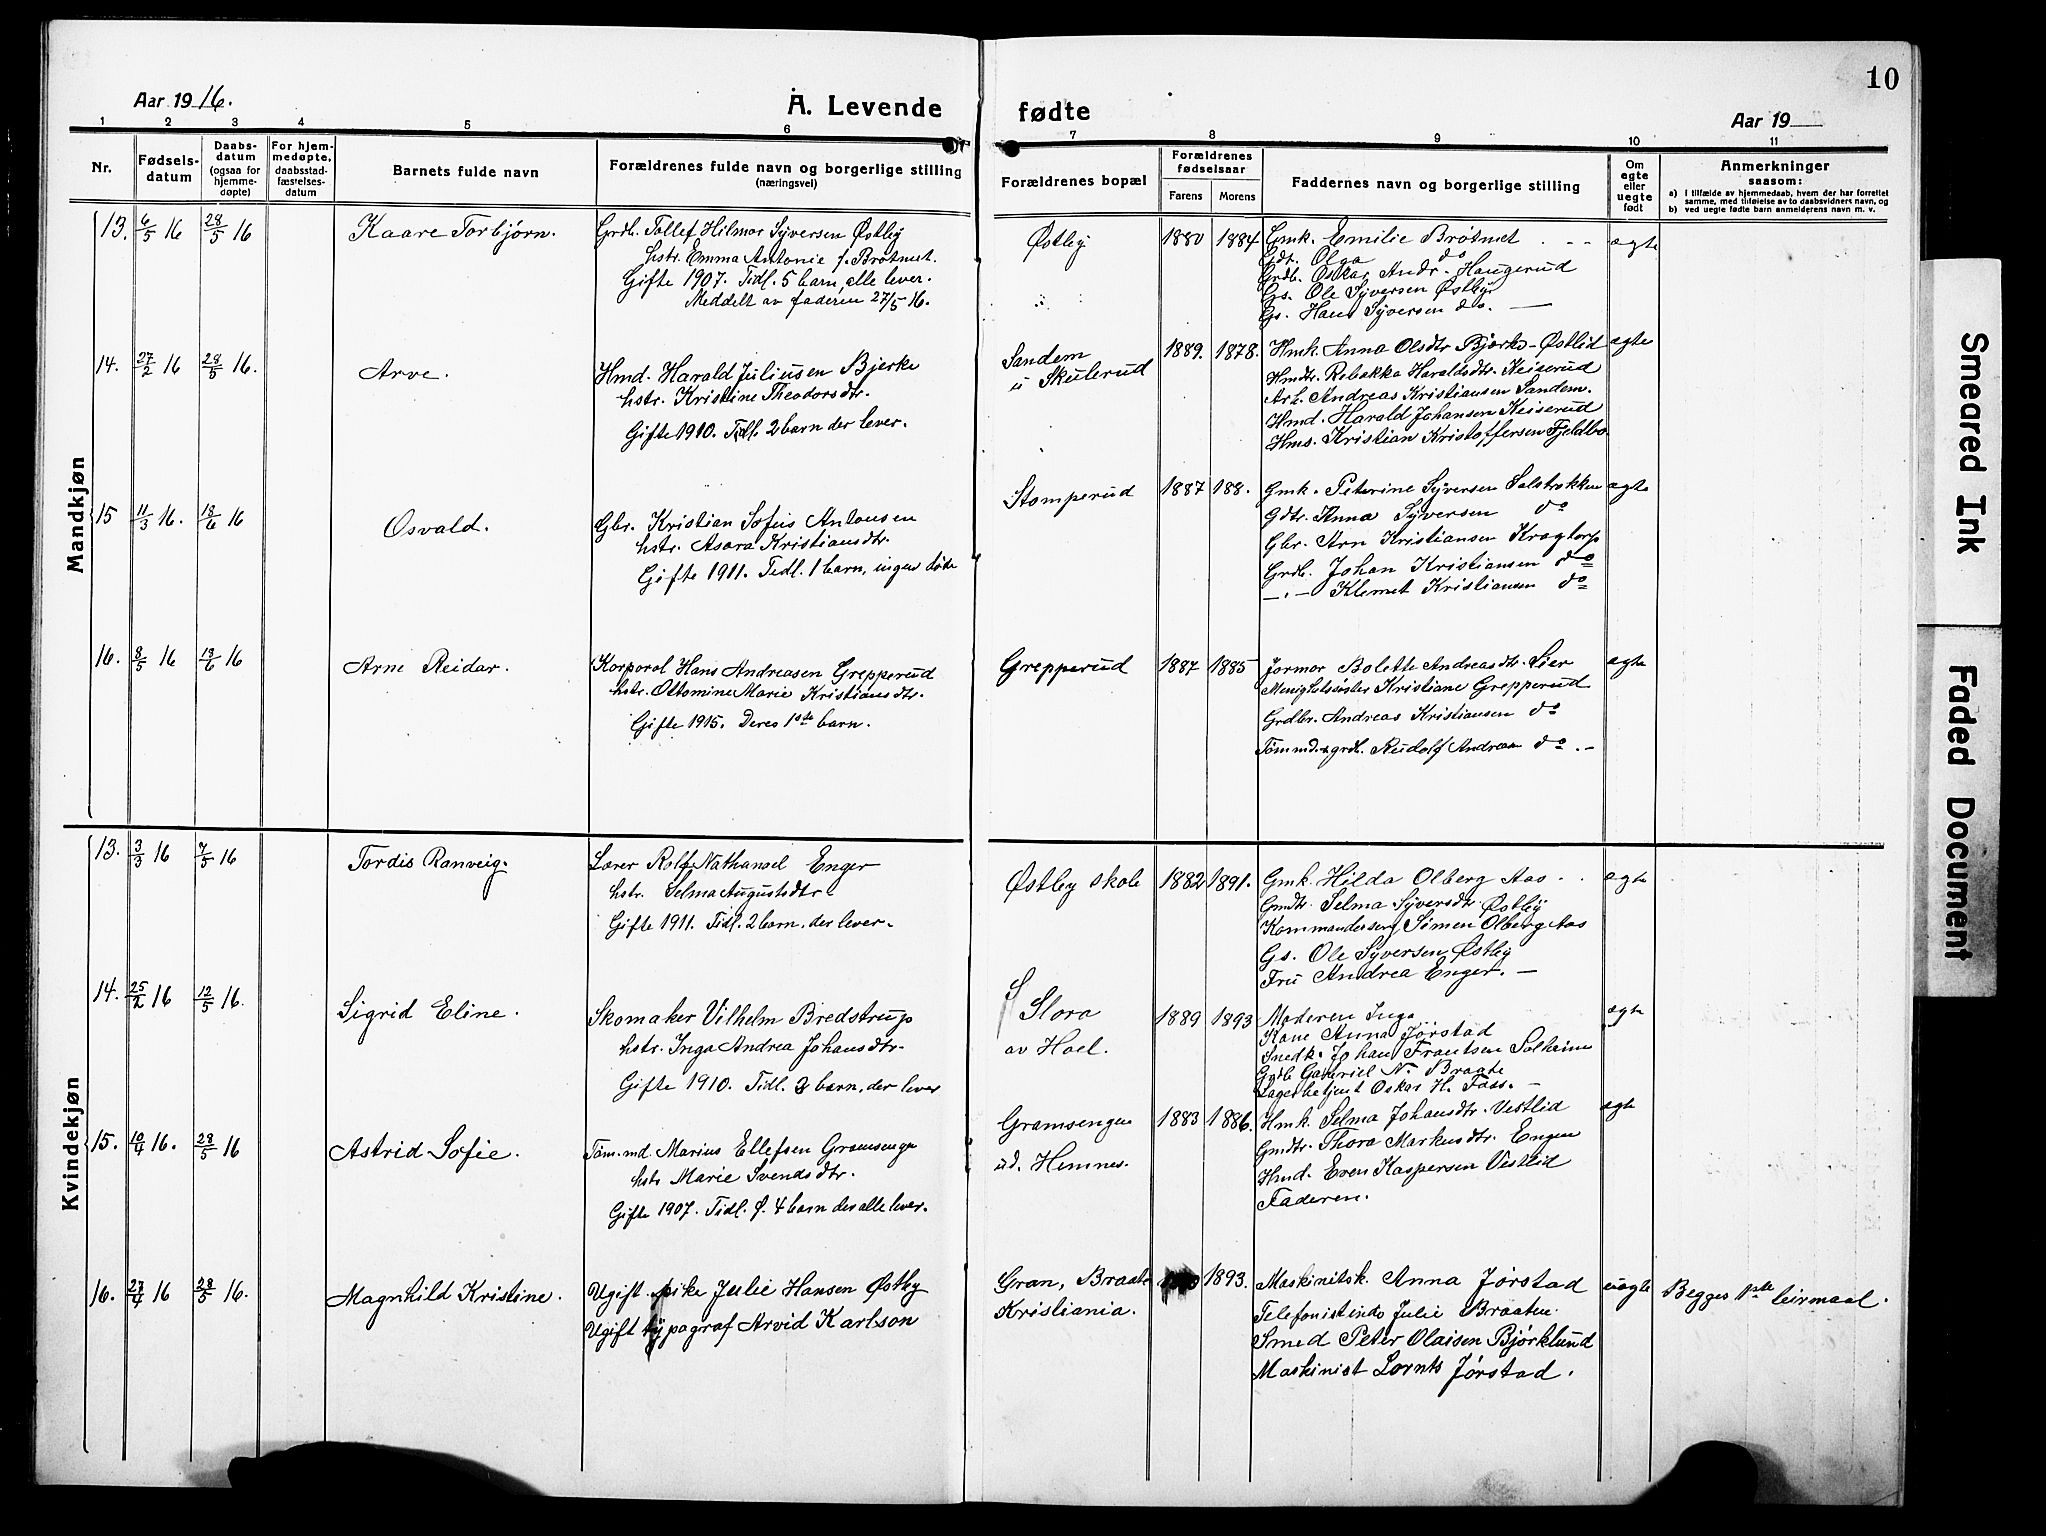 10
Aar 1916.
A. Levende
fødte
Aar 19
1 2 3 4 5 6 7 8 9 10 11
Nr.
Fødselsdatum
Daabsdatum (ogsaa for hjemmedøpte)
For hjemmedøpte, daabsstadfæstelsesdatum
Barnets fulde navn
Forældrenes fulde navn og borgerlige stilling
(næringsvei)
Forældrenes bopæl
Forældrenes fødselsaar
Farens Morens
Faddernes navn og borgerlige stilling
Om ægte eller uegte født
Anmerkninger
saasom:
a) I tilfælde av hjemmedaab, hvem der har forrettet samme, med tilføielse av to daabsvidners navn, og
b) ved uegte fødte barn anmelderens navn m. v.
Mandkjøn
13. 6/5 16 28/5 16
Kaare Torbjørn.
Grdb. Tollef Hilmar Syversen Østby
hstr. Emma Antonie f. Brøtmet.
Gifte 1907. Tidl. 5 barn, alle lever.
Meddelt av faderen 27/5 16.
Østby
1880 1884
Gmk. Emilie Brøtmet
Gdt. Olga do
Grdb. Oskar Andr. Haugerud
Gs. Ole Syversen Østby
Gs. Hans Syversen do. —
ægte
14. 27/2 16 28/5 16.
Arve.
Hmd. Harald Juliussen Bjerke
hstr. Kristine Theodorsdtr.
Gifte 1910. Tidl. 2 barn der lever.
Sandem
u Skulerud
1889. 1878.
Hmk. Anna Olsdtr Bjerke-Østlid
Hmdtr. Rebekka Haraldsdtr. Keiserud
Arb. Andreas Kristiansen Sandem.
Hmd. Harald Johansen Keiserud
Hms. Kristian Kristoffersen Fjeldbo.
ægte
15 11/3 16. 18/6 16
Osvald.
Gbr. Kristian Sofus Antonsen
hstr. Asora Kristiansdtr.
Gifte 1911. Tidl. 1 barn, ingen døde
Stomperud
1887 188.
Gmk. Peterine Syversen
Gdtr. Anna Syversen do
Gbr. Arn Kristiansen Kragtorp
Grdb. Johan Kristiansen do
—.— Klemet Kristiansen do
ægte
16. 8/5 16 18/6 16
Arne Reidar.
Korporal Hans Andreasen Grepperud
hstr. Ottomine Marie Kristiansdtr.
Gifte 1915. Deres 1ste barn.
Grepperud
1887 1885
Jormor Bolette Andreasdtr. Lier
Menighetssøster Kristiane Grepperud
Grdbr. Andreas Kristiansen do
Tømmdr. grdl. Rudolf Andreas. do. -
ægte
Kvindekjøn
13. 3/3 16 7/5 16
Tordis Ranveig.
Lærer Rolf Nathanael Enger
hstr. Selma Augustsdtr.
Gifte 1911. Tidl. 2 barn. der lever.
Østby skole
1882 1891.
Gmk. Hilda Olberg Aas
Gmdtr. Selma Syversdtr. Østby
Kommandersers. Simen Olberg Aas
Gs. Ole Syversen Østby
Fru Andrea Enger. —
ægte
14. 25/2 16 12/5 16.
Sigrid Eline.
Skomaker Vilhelm Bredstrup
hstr. Inga Andrea Johansdtr.
Gifte 1910. Tidl. 2 barn, der lever
Slora
av Hoel.
1889 1893
Moderen Inga
Kone Anna Jørstad
Snedk. Johan Frantsen Solheim
Grdb Gabriel N. Braate
Lagerbetjent Oskar H. Foss. —
ægte
15. 10/4 16. 28/5 16
Astrid Sofie.
Tøm.md Marius Ellefsen Gramsengen
hstr Marie Svendsdtr.
Gifte 1907. Tidl. f. 4 barn der alle lever.
Gramsengen
ud. Hemnes.
1883 1886.
Hmk. Selma Johansdtr. Vestlid
Gmdtr. Thora Markusdtr. Engen
Hmd. Even Kaspersen Vestlid
Faderen.
ægte
16. 27/4 16 28/5 16.
Magnhild Kristine.
Ugift pike Julie Hansen Østby
Ugift typograf Arvid Karlson
Gran, Braate
Kristiania.
1893.
Maskinitsk. Anna Jørstad
Telefonistinde Julie Braaten.
Smed Peter Olaisen Bjørklund
Maskinist Lornts Jørstad.
uægte
Begges 1ste leirmaal.
Smeared Ink
Faded Document